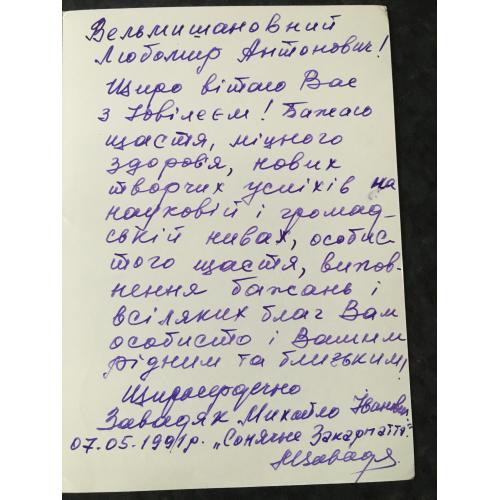 Вельмишановний
Любомир Антонович!
Щиро вітаю Вас
з Ювілеєм! Бажаю
щастя, міцного
здоров'я, нових
творчих успіхів на
науковій і громад-
ській нивах, особис-
того щастя, випов-
нення бажань і
всіляких благ Вам
особисто і Вашим
рідним та близьким!
Щиросердечно
Завадяк Михайло Іванович
07.05.1991р. „Сонячне Закарпаття"
МЗавадя